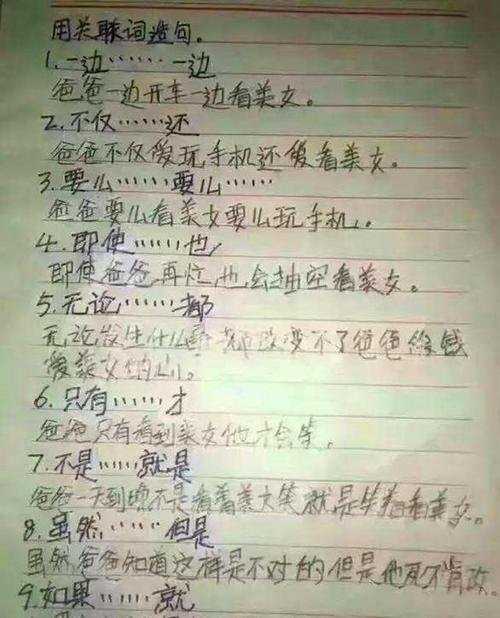 用关联词造句。
1.一边……一边
爸爸一边开车一边看美女。
2.不仅……还
爸爸不仅爱玩手机还爱看美女。
3.要么……要么……
爸爸要么看美女要么玩手机。
4.即使……也
即使爸爸再忙,也会抽空看美女。
5.无论……都
无论发生什么事都改变不了爸爸
爱美女的心。
6.只有……才
爸爸只有看到美女他才会笑。
7.不是……就是
爸爸一天到晚不是看着美女笑就是笑着看美女。
8.虽然……但是
虽然爸爸知道这样是不对的但是他死不肯改。
9.如果……就